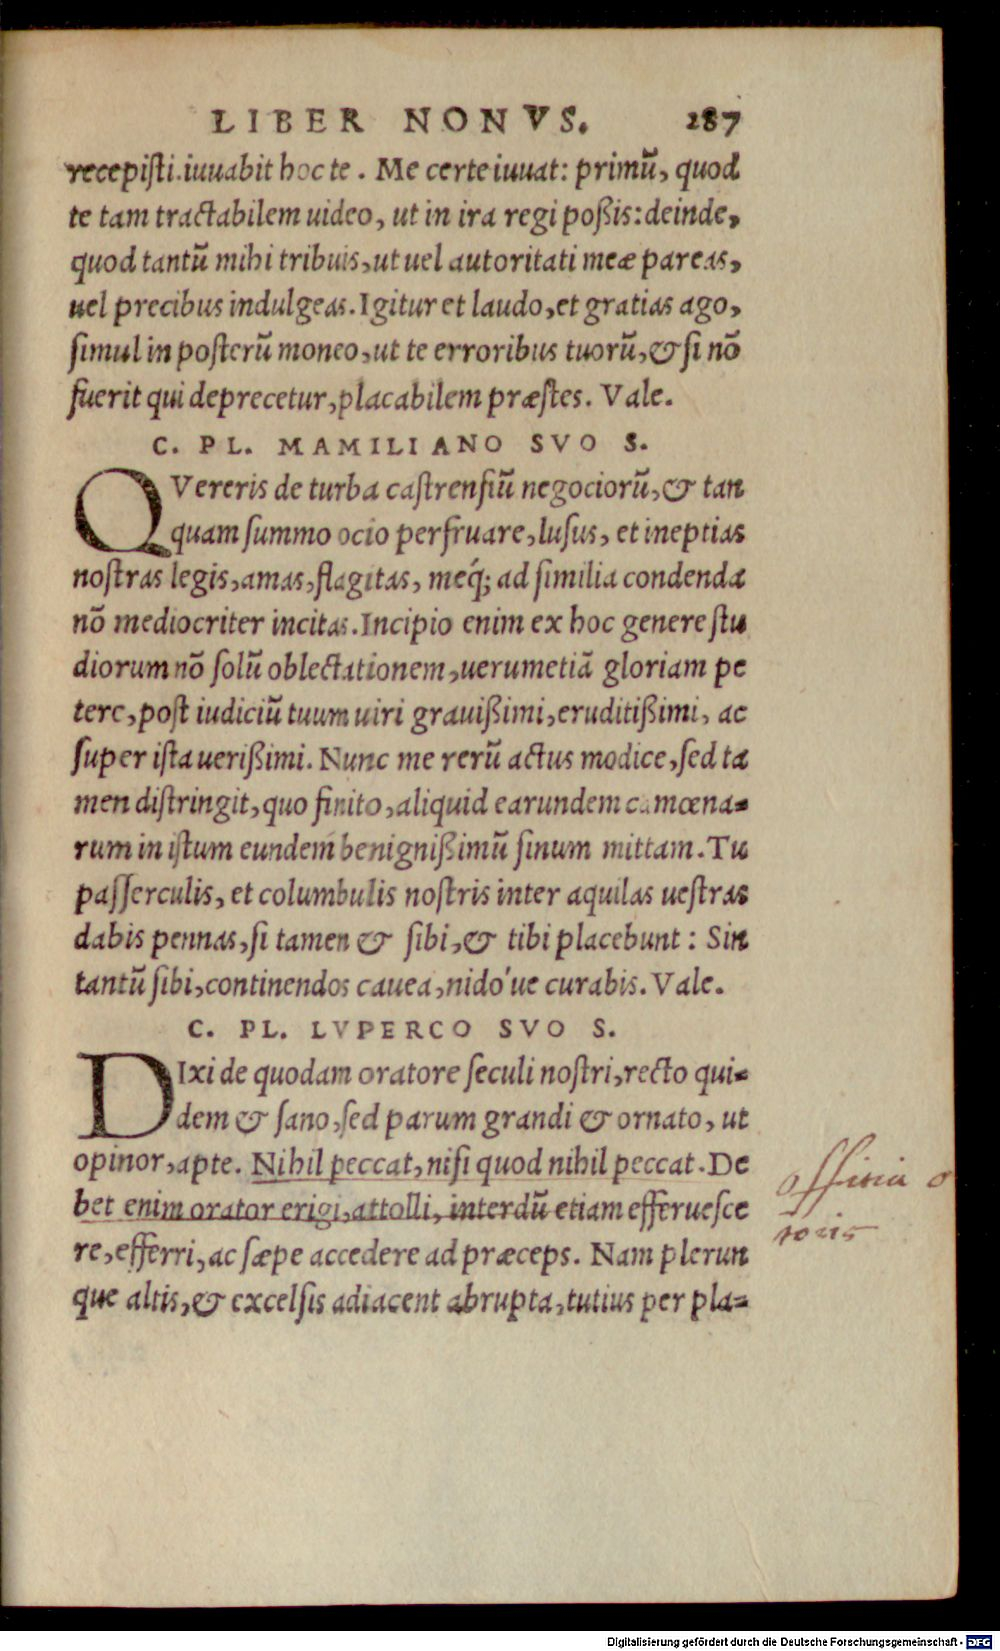 LIBER NONVS. 287
recepisti.iuuabit hoc te. Me certe iuuat: primũ, quod
te tam tractabilem uideo, ut in ira regi poßis: deinde,
quod tantũ mihi tribuis, ut uel autoritati meæ pareas,
uel precibus indulgeas. Igitur et laudo, et gratias ago,
simul in posterũ moneo, ut te erroribus tuorũ, & si nõ
fuerit qui deprecetur, placabilem præstes. Vale.
C. PL. MAMILIANO SVO S.
QVereris de turba castrensiũ negociorũ, & tan
quam summo ocio perfruare, lusus, et ineptias
nostras legis, amas, flagitas, meq́; ad similia condenda
nõ mediocriter incitas. Incipio enim ex hoc genere stu
diorum nõ solũ oblectationem, uerumetiã gloriam pe
tere, post iudiciũ tuum uiri grauißimi, eruditißimi, ac
super ista uerißimi. Nunc me rerũ actus modice, sed ta
men distringit, quo finito, aliquid earundem camœna-
rum in istum eundem benignißimũ sinum mittam. Tu
passerculis, et columbulis nostris inter aquilas uestras
dabis pennas, si tamen & sibi, & tibi placebunt: Sin
tantũ sibi, continendos cauea, nido'ue curabis. Vale.
C. PL. LVPERCO SVO S.
DIxi de quodam oratore seculi nostri, recto qui-
dem & sano, sed parum grandi & ornato, ut
opinor, apte. Nihil peccat, nisi quod nihil peccat. De
bet enim orator erigi, attolli, interdũ etiam efferuesce
re, efferri, ac sæpe accedere ad præceps. Nam plerun
que altis, & excelsis adiacent abrupta, tutius per pla-
officia o
toris
Digitalisierung gefördert durch die Deutsche Forschungsgemeinschaft - DFG